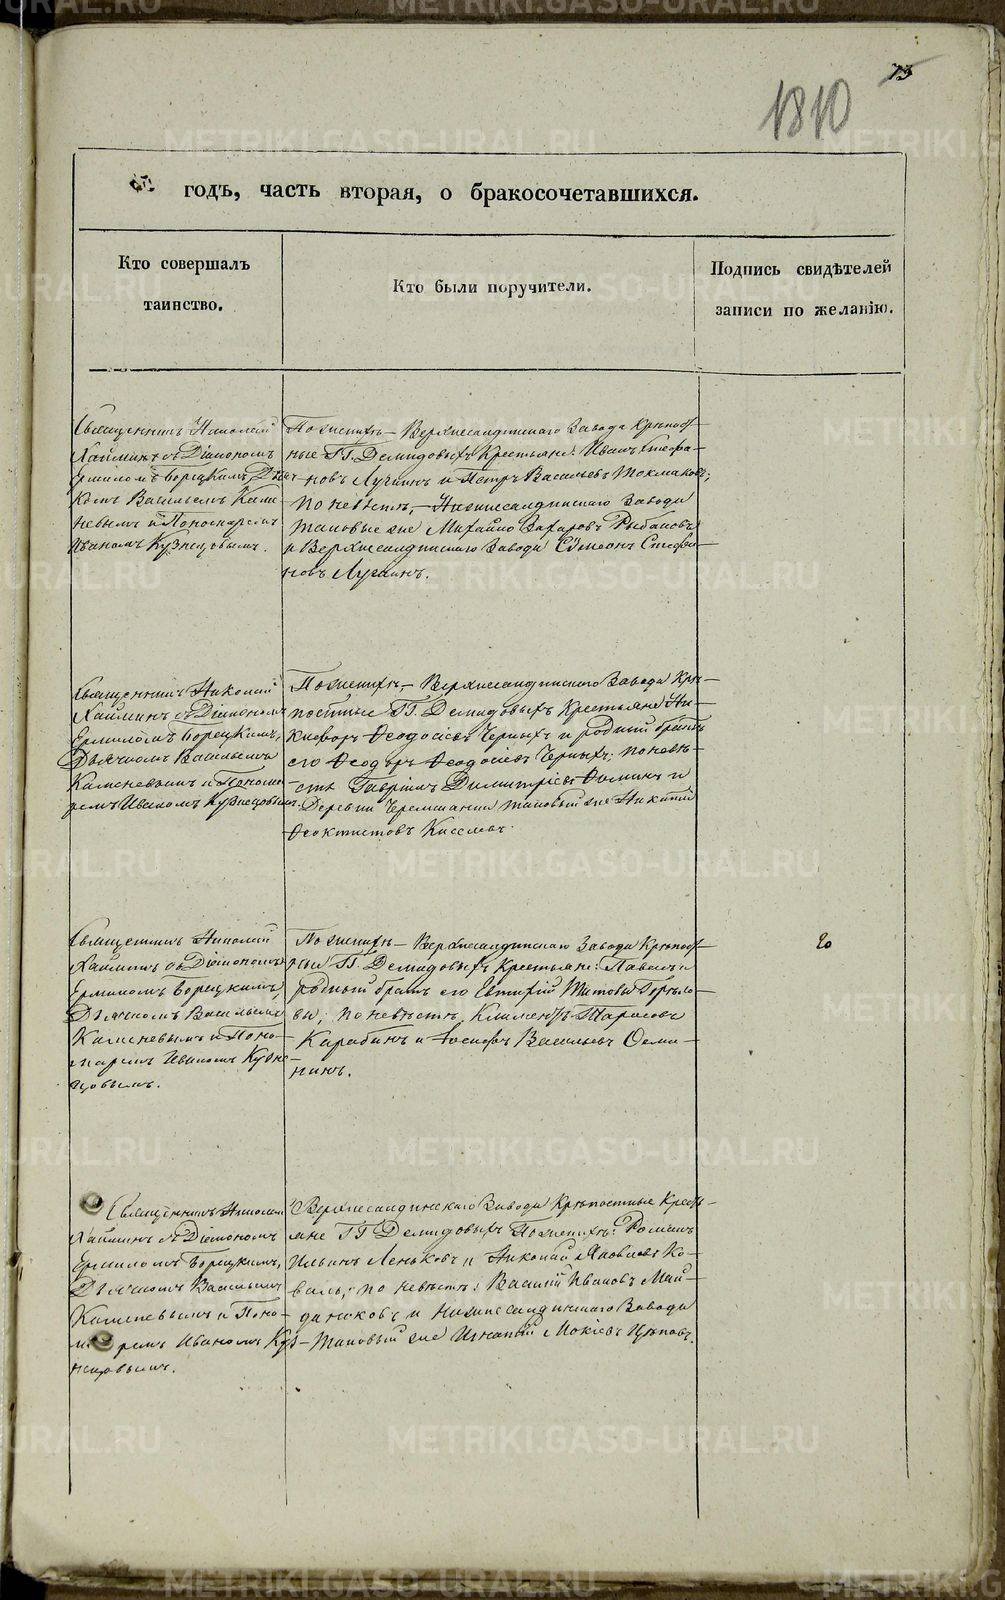 73
1810
годъ, часть вторая, о бракосочетавшихся.
Кто совершалъ
таинство.
Кто были поручители.
Подпись свидѣтелей
записи по желанію.
Священникъ Николай
съ Діакономъ
Ермиломъ Борецкимъ, Дьяч
комъ Васильемъ Каме
невымъ и Пономаремъ
Иваномъ Кузнецовымъ.
По женихѣ – Верхнесалдинскаго Завода Крѣпост
ные ГГ. Демидовыхъ Крестьяне: Иванъ Стефа–
новъ Лучкинъ и Петръ Васильевъ Токмаковъ;
по невѣстѣ, – Нижнесалдинскаго Завода
таковые же Михайло Захаровъ Рыбаковъ
и Верхнесалдинскаго Завода Сѵмеонъ Стефа–
новъ Лучкинъ.
Священникъ Николай
съ Діакономъ
Ермиломъ Борецкимъ,
Дьячкомъ Васильемъ
Каменевымъ и Понома
ремъ Иваномъ Кузнецовымъ.
По женихѣ, – Верхнесалдинскаго Завода Крѣ–
постные ГГ. Демидовыхъ Крестьяне Ни–
кифоръ Ѳеодосіевъ Черныхъ и родный братъ
его Ѳеодоръ Ѳеодосіевъ Черныхъ; по невѣ–
стѣ Гавріилъ Димитріевъ Ѳоминъ и
Деревни Черемшанки таковый же Никита
Ѳеоктистовъ Киселевъ.
Священникъ Николай
съ Діакономъ
Ермиломъ Борецкимъ,
Дьячкомъ Васильемъ
Каменевымъ и Поно–
маремъ Иваномъ Кузне–
цовымъ.
По женихѣ – Верхнесалдинскаго Завода Крѣпост
ные ГГ. Демидовыхъ Крестьяне: Павелъ и
родный братъ его Евтихій Титовы
вы; по невѣстѣ, Климентъ Тарасовъ
Карабинъ и Іосифъ Васильевъ Осми–
нинъ.
Священникъ Николай
съ Діакономъ
Ермиломъ Борецкимъ,
Дьячкомъ Васильемъ
Каменевымъ и Поно–
маремъ Иваномъ Куз–
нецовымъ.
Верхнесалдинскаго Завода Крѣпостные Кресть–
яне ГГ Демидовыхъ По женихѣ: Романъ
Ильинъ Леньковъ и Николай Яковлевъ Ко–
валь; по невѣстѣ: Василій Ивановъ Май–
дановъ и Нижнесалдинскаго Завода
таковый же Игнатій Мокіевъ Цѣповъ.